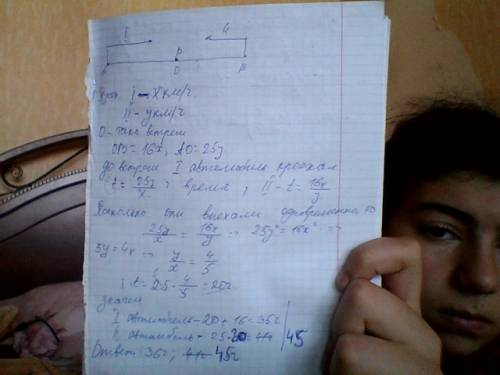 I
A
O
B
I - x км/ч
II - y км/ч
O - точка встречи
OB = 16x, AO = 25y
до встречи I автомобиль проехал
t = 25y/x время, II - t = 16x/y
они выехали одновременно, то
25y/x = 16x/y => 25y² = 16x² =>
5y = 4x => y/x = 4/5
t = 25 · 4/5 = 20ч
значит
I автомобиль - 20 + 16 = 36ч
II автомобиль - 25 + 20 = 45
Ответ 36ч; 45ч